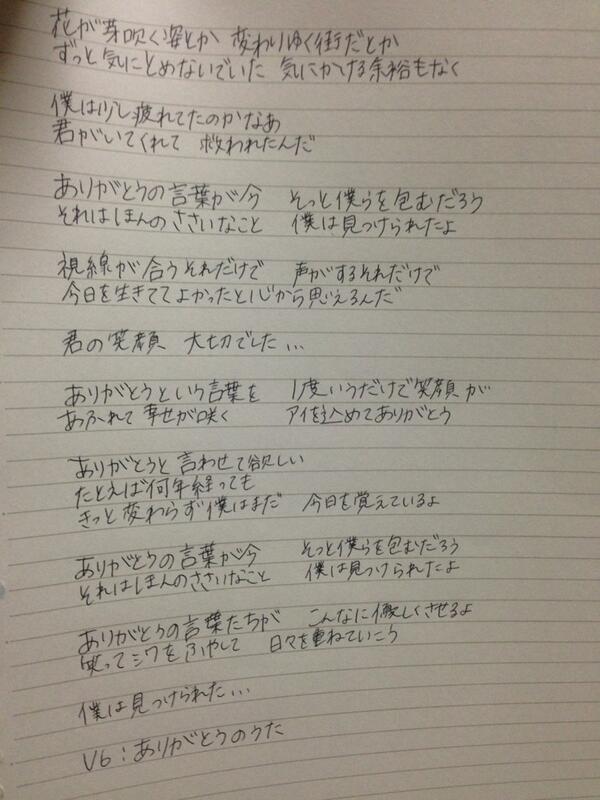 花が芽吹く姿とか 変わりゆく街だとか
ずっと気にとめないでいた 気にかける余裕もなく
僕は少し疲れてたのかなあ
君がいてくれて 救われたんだ
ありがとうの言葉が今 そっと僕らを包むだろう
それはほんのささいなこと 僕は見つけられたよ
視線が合うそれだけで 声がするそれだけで
今日を生きててよかったと心から思えるんだ
君の笑顔 大切でした...
ありがとうという言葉を 1度いうだけで笑顔が
あふれて幸せが咲く アイを込めてありがとう
ありがとうと言わせて欲しい
たとえば何年経っても
きっと変わらず僕はまだ 今日を覚えているよ
ありがとうの言葉が今 そっと僕らを包むだろう
それはほんのささいなこと 僕は見つけられたよ
ありがとうの言葉たちが こんなに優しくさせるよ
笑ってシワをふやして 日々を重ねていこう
僕は見つけられた...
V6:ありがとうのうた